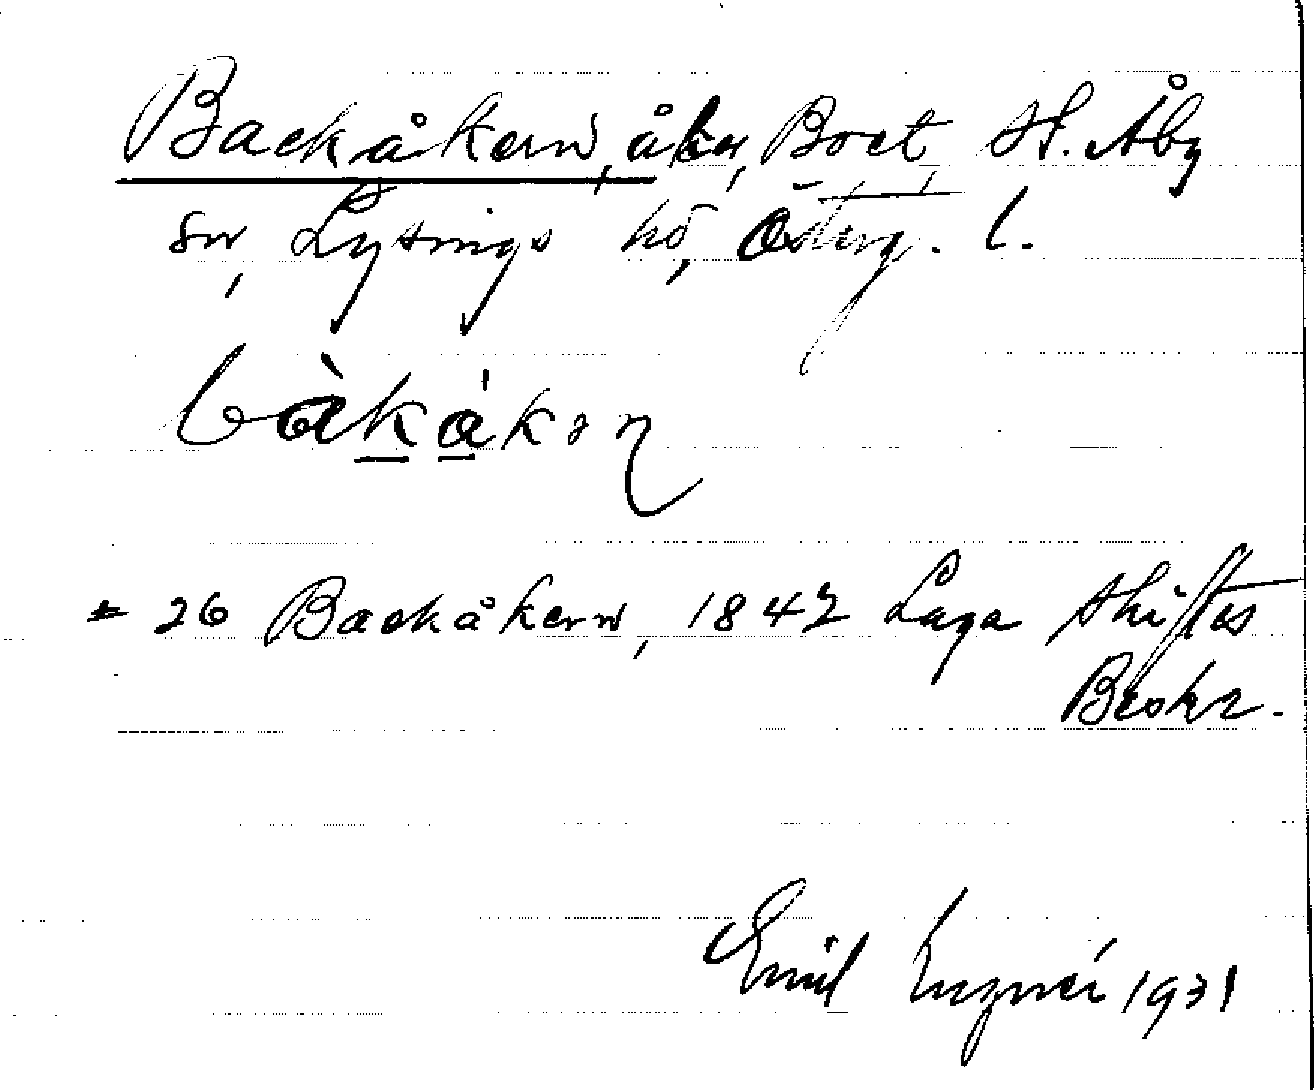 Backåkern, åker, Boet, H. Åby
sn, Lysings hd, Österg. l.
bàkåkən
= 26 Backåkern, 1842 Laga Skiftes
Beskr.
Emil 1931